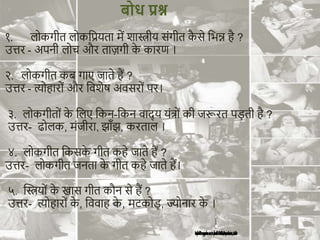 बोध प्रश्न
१. लोकगीत लोकप्रियता में शास्त्रीय संगीत कैसे भिन्न है ?
उत्तर - अपनी लोच और ताज़गी के कारण ।
२. लोकगीत कब गाए जाते हैं ?
उत्तर - त्योहारों और विशेष अवसरों पर।
३. लोकगीतों के लिए किन-किन वाद्य यंत्रों की जरूरत पड़ती है ?
उत्तर- ढोलक, मंजीरा, झाँझ, करताल ।
४. लोकगीत किसके गीत कहे जाते हैं ?
उत्तर- लोकगीत जनता के गीत कहे जाते हैं।
५. स्त्रियों के खास गीत कौन से हैं ?
उत्तर- त्योहारों के, विवाह के, मटकोड़, ज्योनार के ।